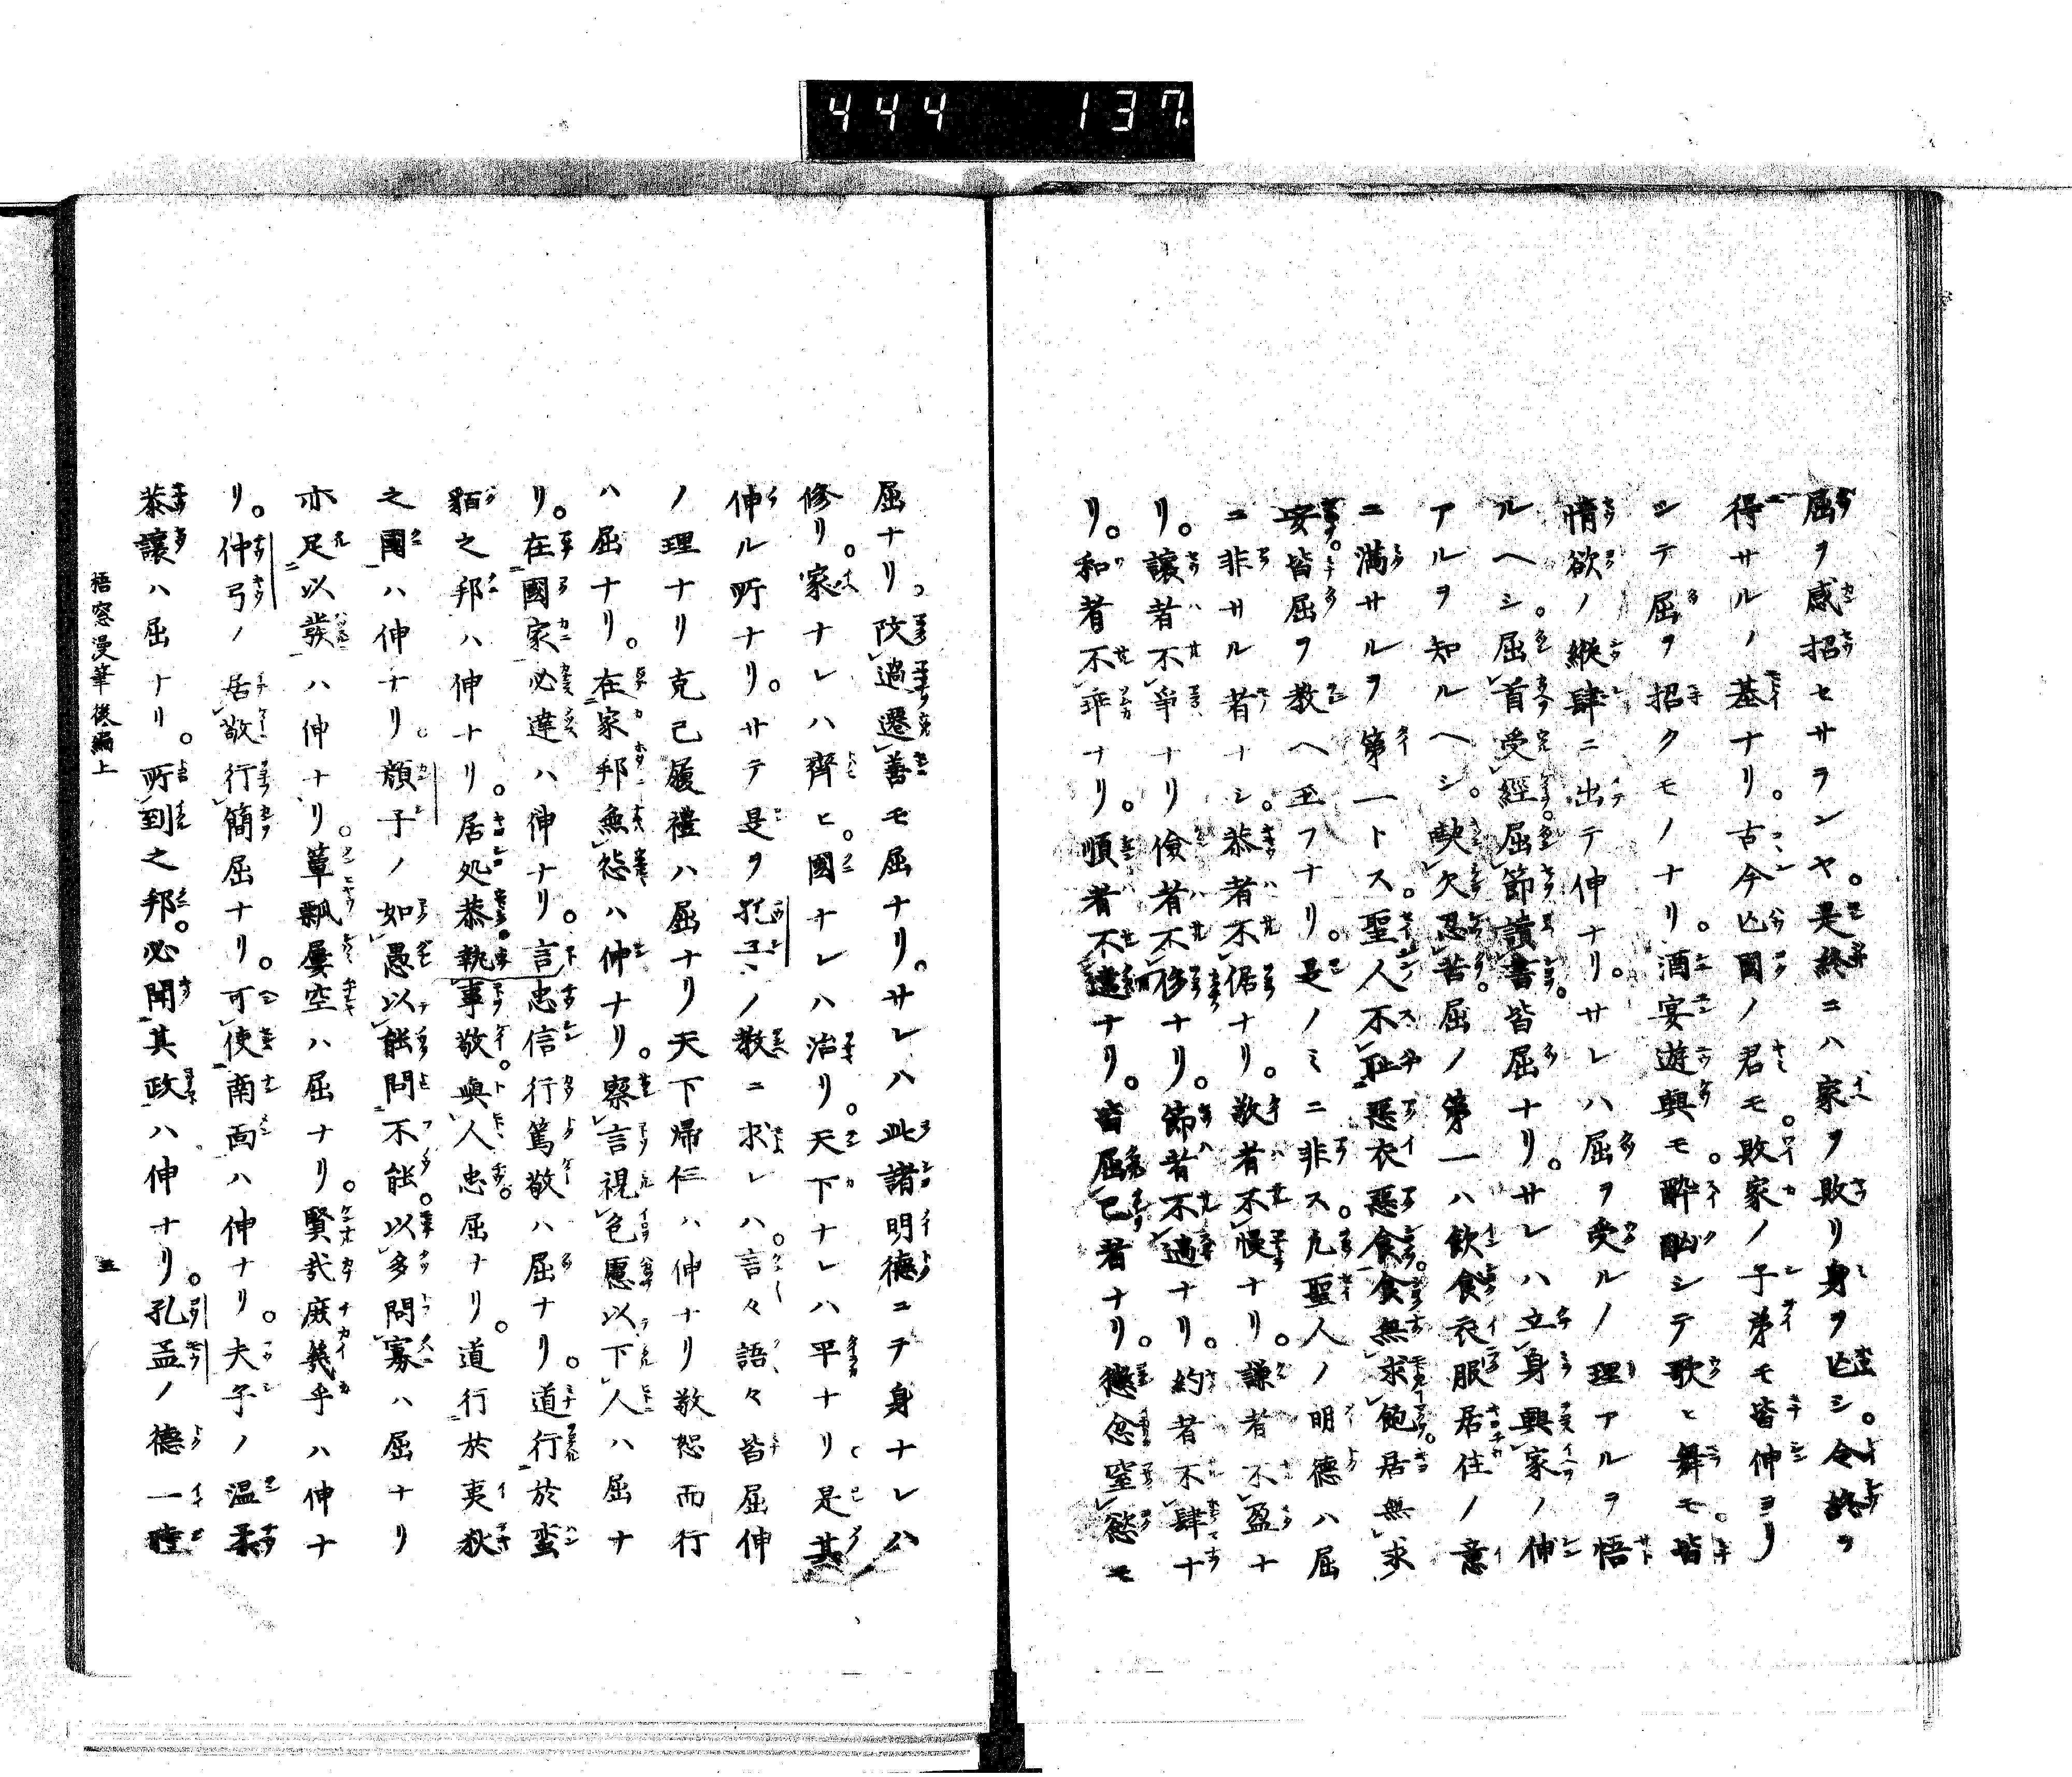 444 137
屈ヲ感招セサランヤ。是終ニハ家ヲ敗リ身ヲ亡シ。令終ヲ
得サルノ基ナリ。古今亡國ノ君モ。敗家ノ子弟モ皆伸ヨリ
シテ屈ヲ招クモノナリ。酒宴遊興モ。酔酗シテ歌ヒ舞モ。皆
情欲ノ縱肆ニ出テ伸ナリ。サレハ屈ヲ受ルノ理アルヲ悟
ルヘシ。屈首受經。屈節讀書。皆屈ナリ。サレハ立身興家ノ伸
アルヲ知ルヘシ。缺欠忍苦。屈ノ第一ハ飲食衣服居住ノ意
ニ滿サルヲ第一トス。聖人不耻惡衣惡食。食無求飽。居無求
安。皆屈ヲ教ヘ玉フナリ。是ノミニ非ス。凡聖人ノ明德ハ屈
ニ非サル者ナシ。恭者不倨ナリ。敬者不慢ナリ。謙者不盈ナ
リ。讓者不爭ナリ儉者不侈ナリ。節者不過ナリ。約者不肆ナ
リ。和者不乖ナリ。順者不違ナリ。皆屈己者ナリ。懲忿窒慾モ
屈ナリ。改過遷善モ屈ナリ。サレハ此諸明德ニテ身ナレハ
修リ。家ナレハ齊ヒ。國ナレハ治リ。天下ナレハ平ナリ是其
伸ル所ナリ。サテ是ヲ孔子ノ教ニ求レハ。言々語々皆屈伸
ノ理ナリ克己履禮ハ屈ナリ天下帰仁ハ伸ナリ敬恕而行
ハ屈ナリ。在家邦無怨ハ伸ナリ。察言視色慮以下人ハ屈ナ
リ。在國家必達ハ伸ナリ。言忠信行篤敬ハ屈ナリ。道行於蛮
貊之邦ハ伸ナリ。居処恭。執事敬。與人忠。屈ナリ。道行於夷狄
之國ハ伸ナリ。顔子ノ如愚以能問不能。以多問寡ハ屈ナリ
亦足以發ハ伸ナリ。簞瓢屢空ハ屈ナリ。賢哉庶幾乎ハ伸ナ
リ。仲弓ノ居敬行簡屈ナリ。可使南面ハ伸ナリ。夫子ノ温柔
恭讓ハ屈ナリ。所到之邦。必聞其政ハ伸ナリ。孔孟ノ德一睦
梧窓漫筆後編上 三